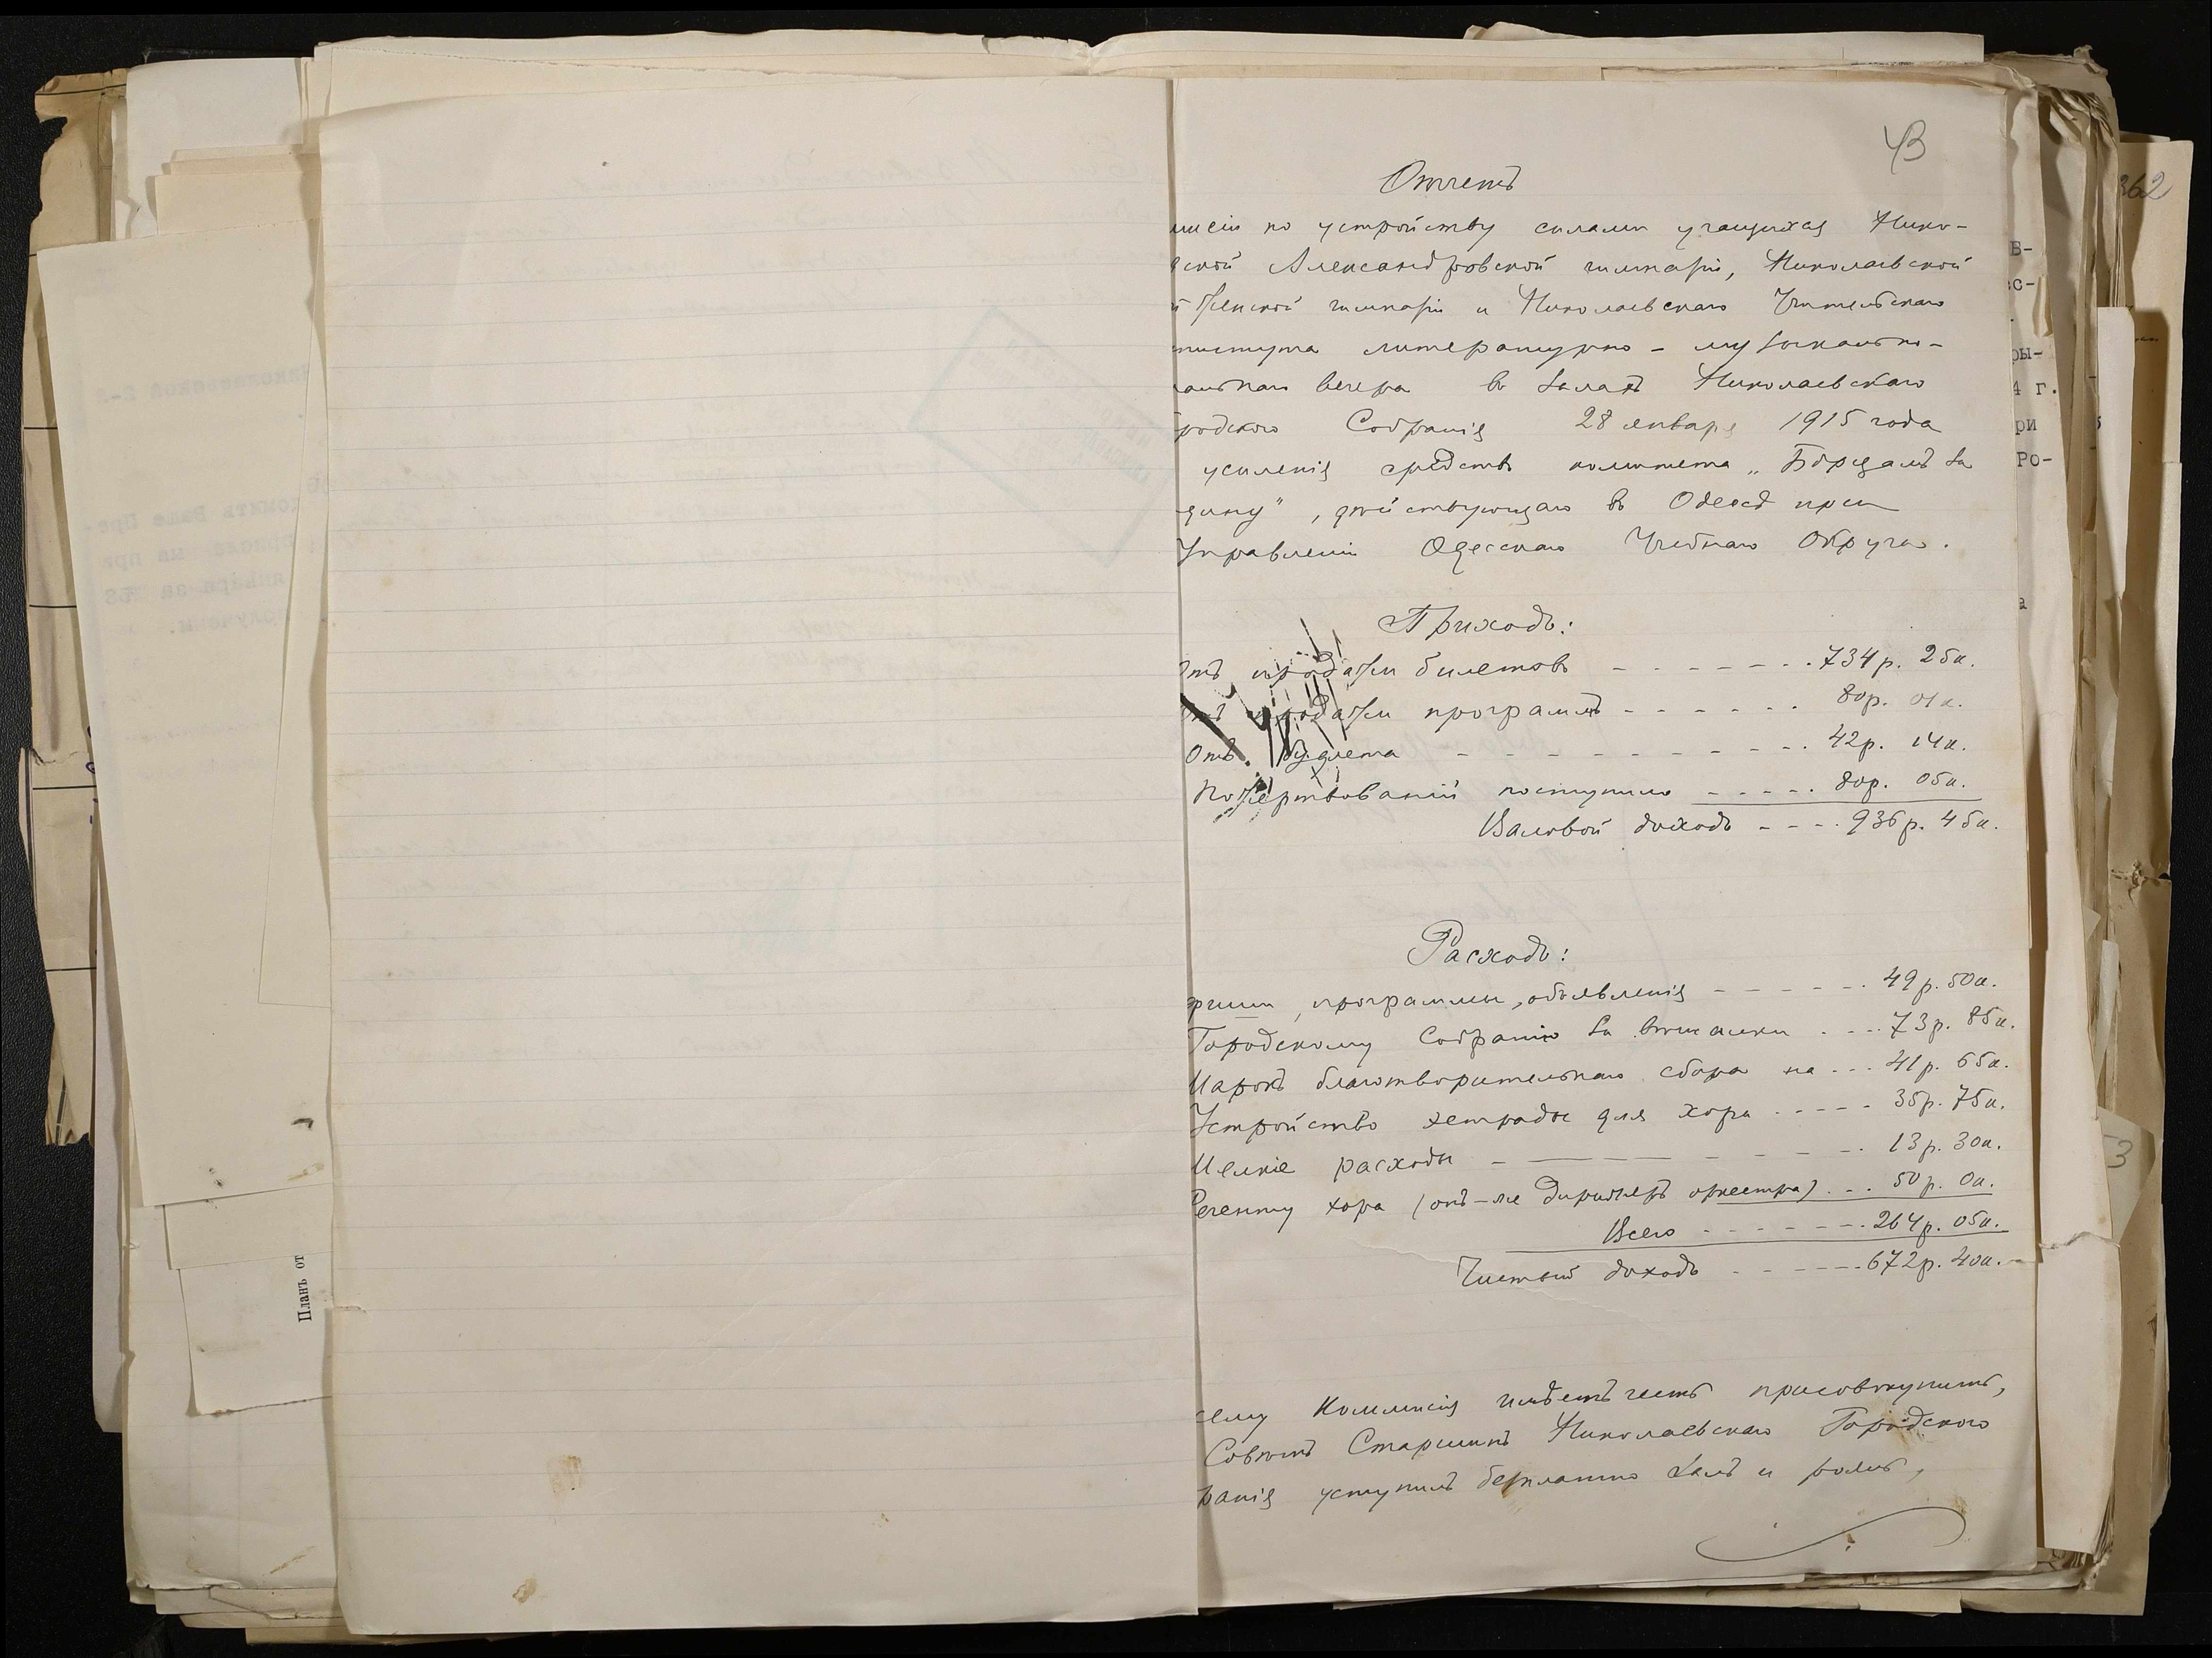 43
Отчетъ
миссіи по устройству силами учащихся Нико-
ской Александровской гимназіи, Николаевской
й женской гимназіи и Николаевскаго Учительскаго
института литературно-музыкально-
вокальнаго вечера въ залахъ Николаевскаго
родского Собранія 28 января 1915 года
усиленія средствъ комитета „Борцамъ за
дину", дѣйствующаго въ Одессѣ при
Управленіи Одесскаго Учебнаго Округа.
Приходъ:
Отъ продажи билетовъ - - - - - - - 734 р. 25 к.
Отъ продажи программъ - - - - - - 80 р. 01 к.
Отъ буфета - - - - - - - - - - - 42 р. 14 к.
Пожертвованій поступило - - - - - 80 р. 05 к.
Валовой доходъ - - - - 936 р. 45 к.
Расходъ:
фиши, программы, объявленія - - - - - - 49 р. 50 к.
Городскому Собранію за вѣшалки - - - - 73 р. 85 к.
Марокъ благотворительнаго сбора на - - - 41 р. 65 к.
Устройство эстрады для хора - - - - - 35 р. 75 к.
Мелкіе расходы - - - - - - - - 13 р. 30 к.
Регенту хора (онъ-же дирижеръ оркестра) - - - 50 р. 0 к.
Всего - - - - - - - 264 р. 05 к.
Чистый доходъ - - - - - - 672 р. 40 к.
сему Коммисія имѣетъ честь присовокупить,
Совѣтъ Старшинъ Николаевскаго Городского
ранія уступилъ безплатно залъ и рояль,
362
В-
с-
ры-
4 г.
ри
РО-
а
3
Планъ от